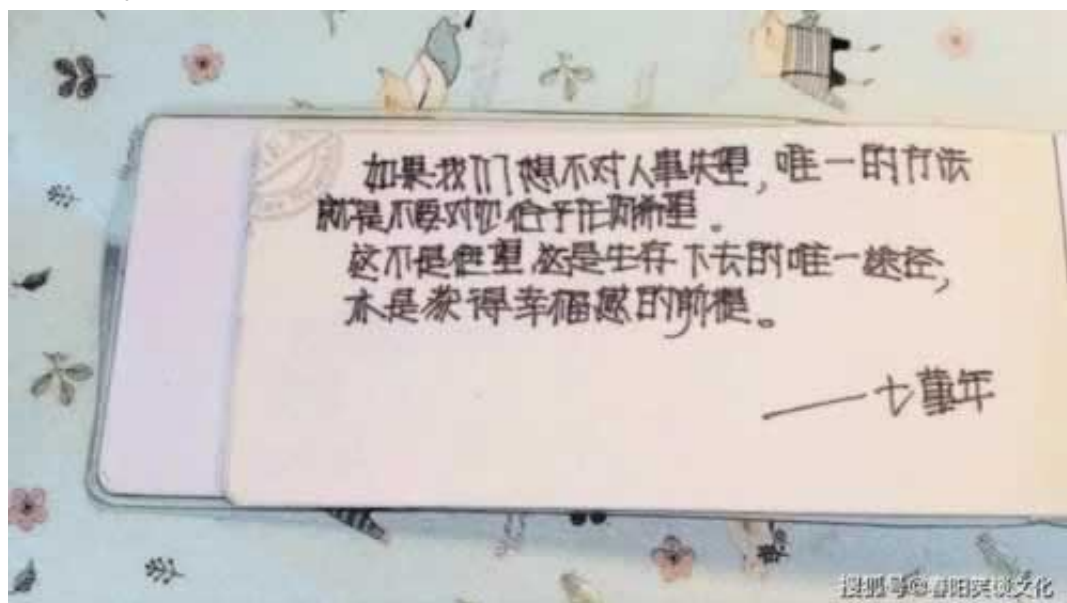 如果我们想不对人事失望，唯一的方法
就是不要对它给予任何希望。
这不是绝望，这是生存下去的唯一途径，
亦是获得幸福感的前提。
——七堇年
搜狐号@春阳笑文化